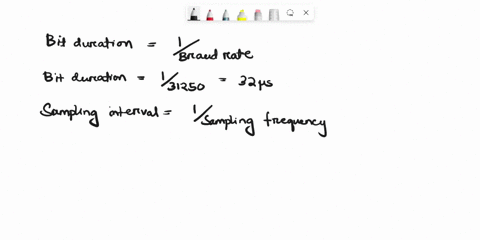 Bit duration = 1/Braud rate
Bit duration = 1/31250 = 32 μs
Sampling interval = 1/Sampling frequency